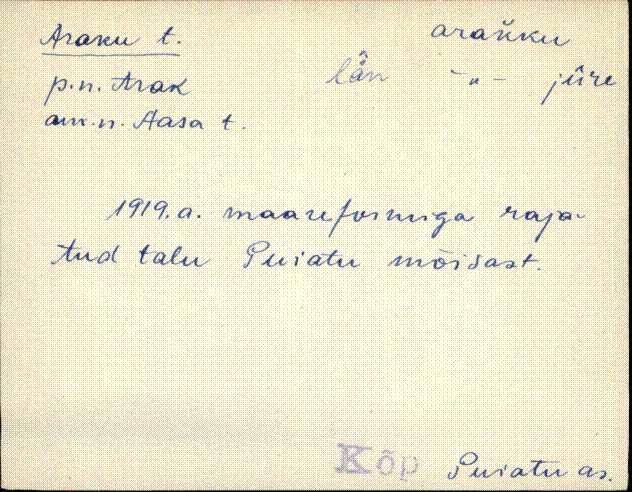 Araku t. araǩku
p.n. Arak län -"- jüre
amx.n. Aasa t.
1919.a. maareformiga raja-
tud talu Puiatu mõisast.
Kõp Puiatu as.